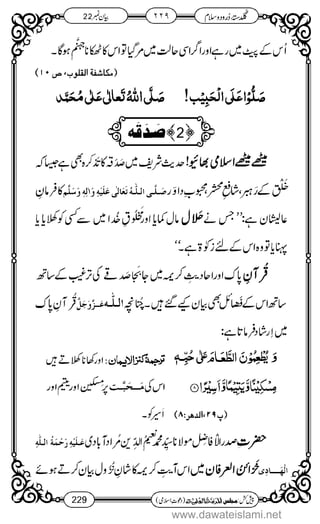 گلدستۂ درود وسلام ۲۲۹ بیان نمبر 22
اُس کے پیٹ میں رہے اور اگر اسی حالت میں مر گیا تو اس کا ٹھکانا جہنّم ہوگا۔
(مکاشفة القلوب، ص ۱۰)
صَلُّوْا عَلَی الْحَبِیْب! صَلَّی اللہُ تَعَالٰی عَلٰی مُحَمَّد
﴿2﴾ صَدَقہ
میٹھے میٹھے اسلامی بھائیو! حدیث شریف میں صَدَقہ کا ذکر بھی ہے جیسا کہ
خَلْق کے رَہبر، شافعِ محشر، محبوبِ داور صلَّی اللہُ تَعَالٰی عَلَیْہِ وَاٰلِہٖ وَسَلَّم کا فرمانِ
عالیشان ہے: ”جس نے حَلَال مال کمایا اور مخلوقِ خُدا میں سے کسی کو کھلایا یا
پہنایا تو وہ اس کے لئے زکوٰۃ ہے۔“
قُرآنِ پاک اور احادیثِ کریمہ میں جابجا صَدَقے کی ترغیب کے ساتھ
ساتھ اس کے فضائل بھی بیان کیے گئے ہیں۔ چنانچہ اللہ عَزَّوَجَلَّ قُرآنِ پاک
میں ارشاد فرماتا ہے:
وَ یُطْعِمُوْنَ الطَّعَامَ عَلٰی حُبِّهٖ ترجمۂ کنزالایمان: اور کھانا کھلاتے ہیں
مِسْكِیْنًا وَّ یَتِیْمًا وَّ اَسِیْرًا۝۸ اس کی مَحَبَّت پر مسکین اور یتیم اور
(پ۲۹، الدھر:۸) اسیر کو۔
حضرت صدرُ الافاضل مولانا سیّد محمد نعیم الدّین مُراد آبادی عَلَیْہِ رَحْمَۃُ اللہِ
الْھَادِی خزائنُ العرفان میں اس آیتِ کریمہ کا شانِ نُزول بیان کرتے ہوئے
229
www.dawateislami.net